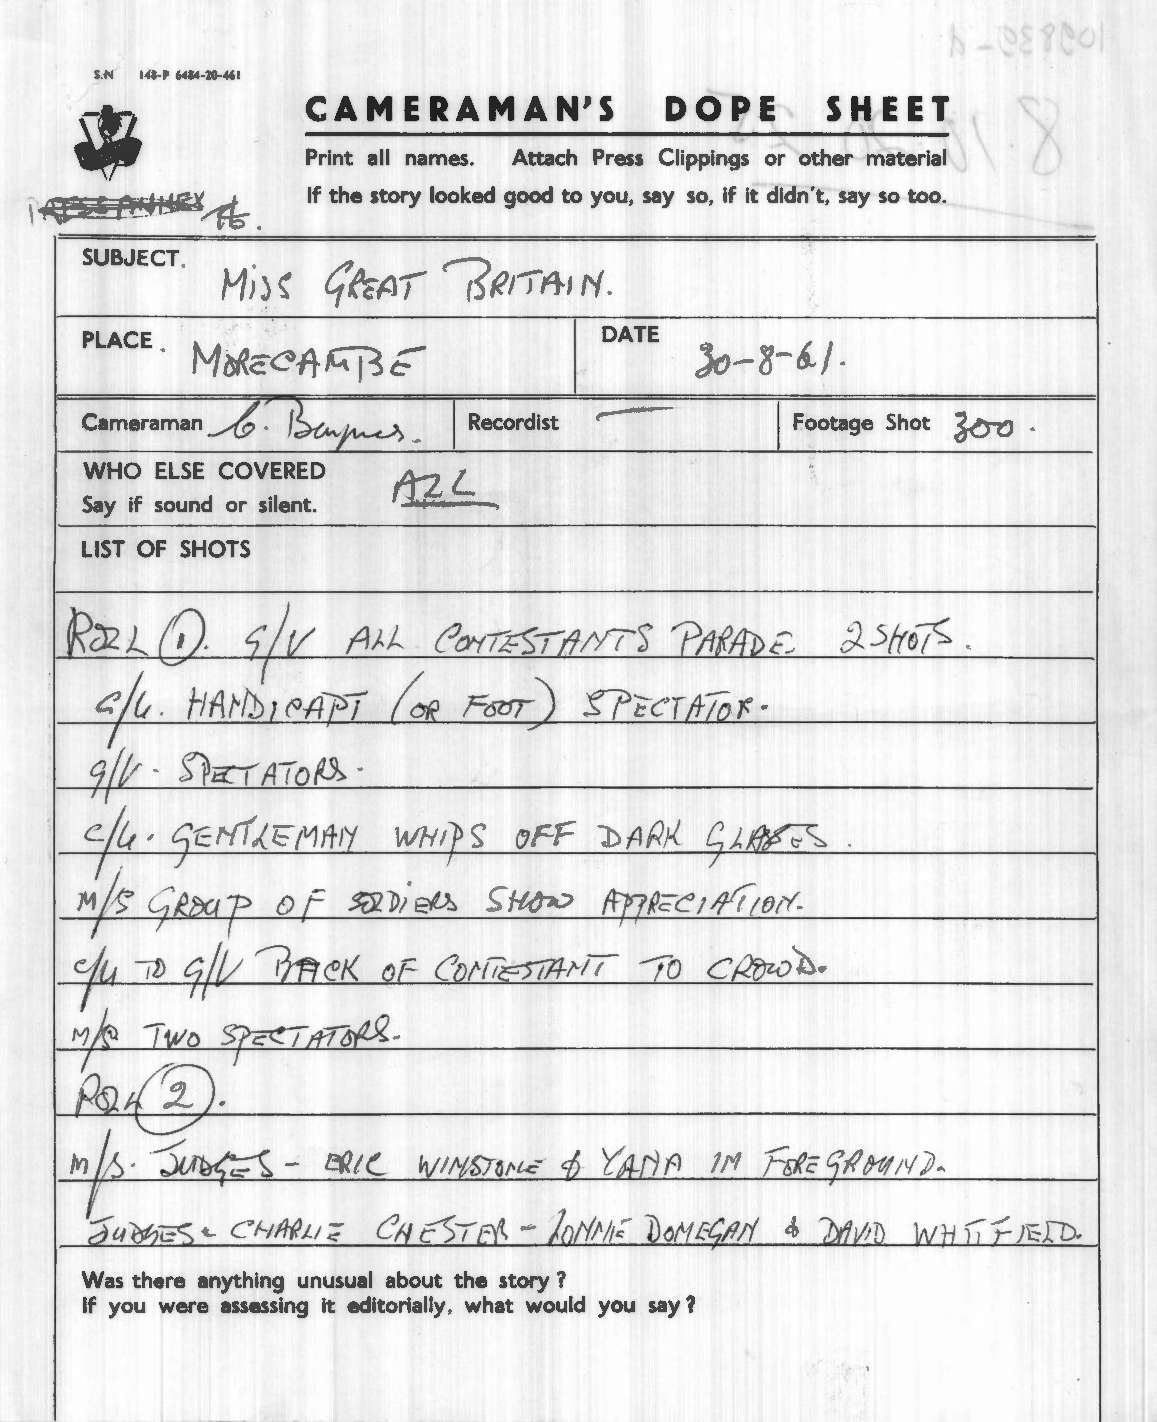 S.N 148-P 6484-20-461
CAMERAMAN'S DOPE SHEET
Print all names. Attach Press Clippings or other material
If the story looked good to you, say so, if it didn't, say so too.
SUBJECT. MISS GREAT BRITAIN.
PLACE. MORECAMBE DATE 30-8-61.
Cameraman Recordist — Footage Shot 300.
WHO ELSE COVERED ALL
Say if sound or silent.
LIST OF SHOTS
ROLL 1. G/V ALL CONTESTANTS PARADE. 2 SHOTS.
C/U. HANDICAPT (OR FOOT) SPECTATOR.
G/V. SPECTATORS.
C/U. GENTLEMAN WHIPS OFF DARK GLASSES.
M/S GROUP OF SOLDIERS SHOW APPRECIATION.
C/U TO G/V BACK OF CONTESTANT TO CROWD.
M/S TWO SPECTATORS.
ROLL 2.
M/S. JUDGES - ERIC WINSTONE & YANA IN FOREGROUND.
JUDGES - CHARLIE CHESTER - LONNIE DONEGAN & DAVID WHITFIELD.
Was there anything unusual about the story?
If you were assessing it editorially, what would you say?